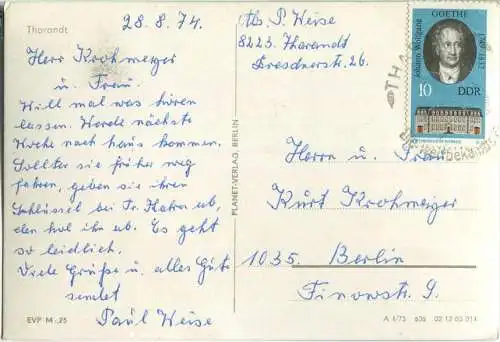 Tharandt
28.8.74.
Herr Krohmeyer
u. Frau.
Will mal was hören
lassen. Werde nächste
Woche nach haus kommen.
Sollten sie früher weg
fahren, geben sie ihren
Schlüssel bei Fr. ab,
den hol ihn ab. Es geht
so leidlich.
Viele Grüße u. alles Gute
sendet
Paul Weise
EVP M -,25
PLANET-VERLAG, BERLIN
Abs. P. Weise
8223 Tharandt
Dresdnerstr. 26.
GOETHE
Johann Wolfgang
1749-1832
10 DDR
THA
Herrn u. Frau
Kurt Krohmeyer
1035. Berlin
Finowstr. 9.
A 1/73 636 02 12 03 014